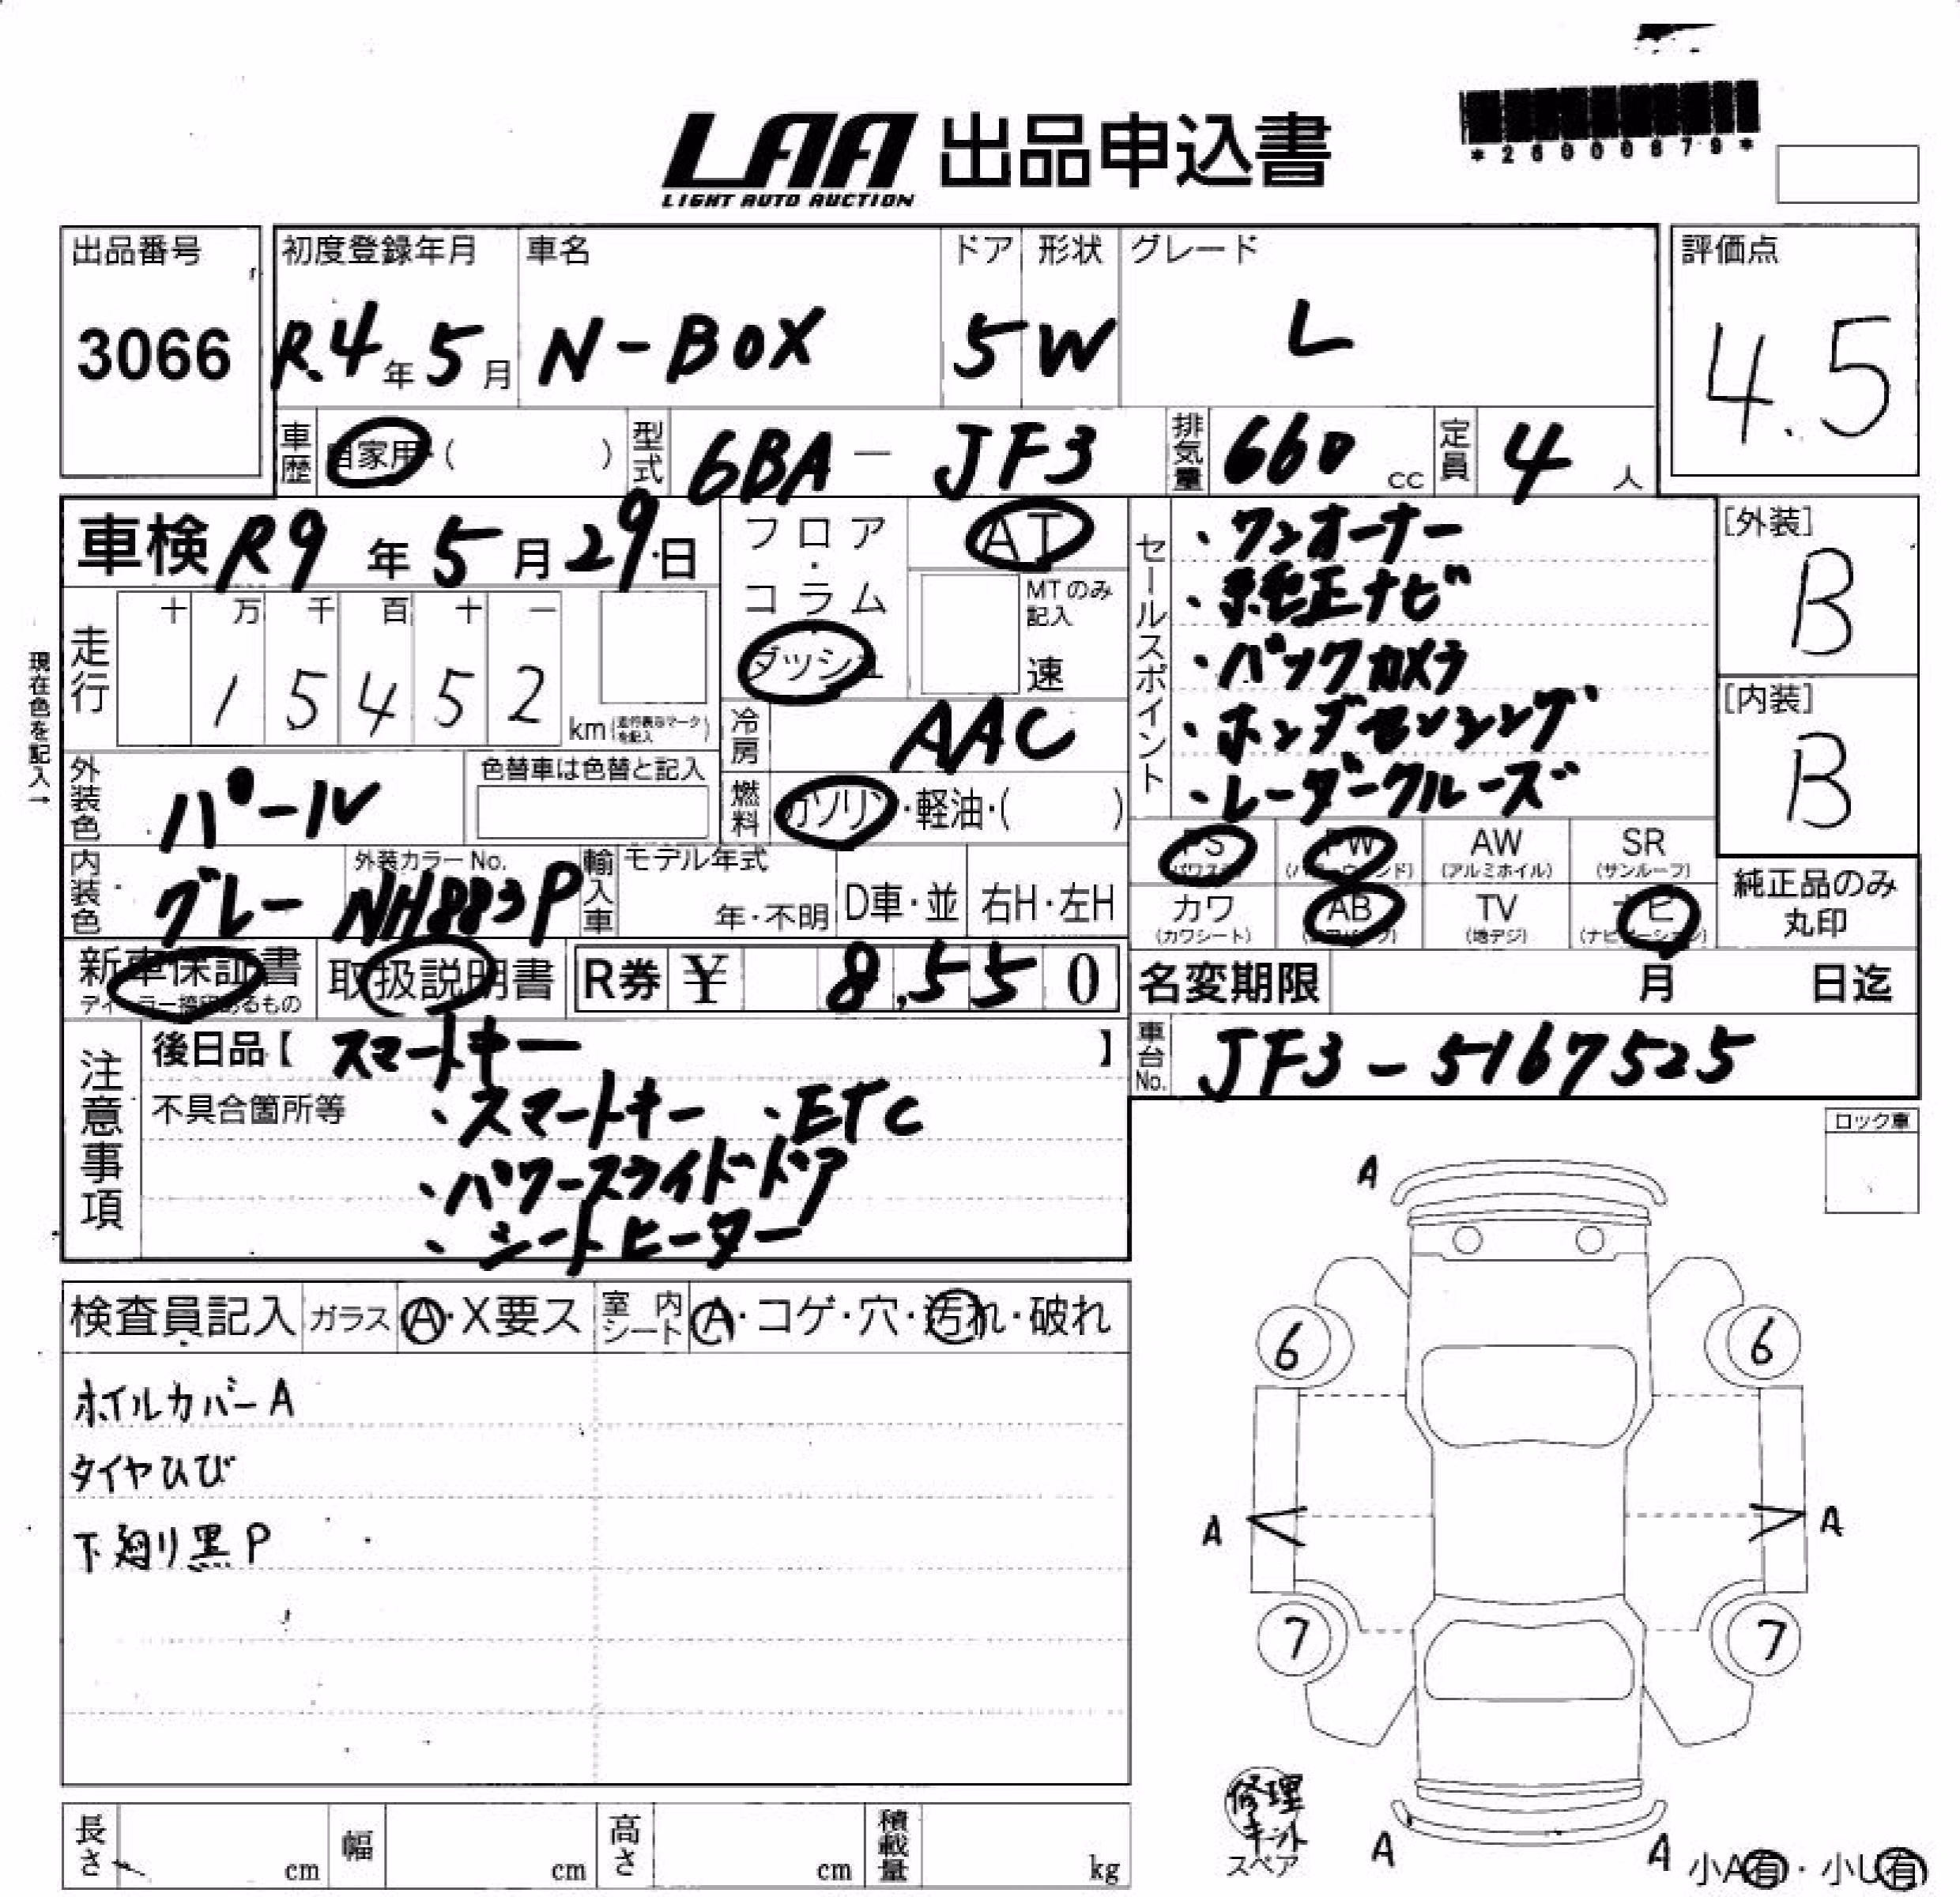 LAA 出品申込書
LIGHT AUTO AUCTION
*26000879*
出品番号
3066
初度登録年月
R.4年5月
車名
N-BOX
ドア
5
形状
W
グレード
L
評価点
4.5
車歴 自家用・( )
型式 6BA - JF3
排気量 660 cc
定員 4 人
車検 R9年5月29日
フロア・コラム・ダッシュ
AT
MTのみ記入
速
現在色を記入→
走行
十 万 千 百 十 一
1 5 4 5 2 km (走行表示マークを記入)
冷房 AAC
燃料 ガソリン・軽油・( )
外装色 パール
色替車は色替と記入
内装色 グレー
外装カラーNo.
NH883P
輸入車
モデル年式
年・不明
D車・並
右H・左H
セールスポイント
・ワンオーナー
・純正ナビ
・バックカメラ
・ホンダセンシング
・レーダークルーズ
[外装]
B
[内装]
B
PS (パワステ)
PW (パワーウィンド)
AW (アルミホイル)
SR (サンルーフ)
カワ (カワシート)
AB (エアバック)
TV (地デジ)
ナビ (ナビゲーション)
純正品のみ丸印
新車保証書
ディーラー捺印あるもの
取扱説明書
R券 ¥ 8,550
名変期限 月 日迄
車台No. JF3-5167525
注意事項
後日品【 スマートキー 】
不具合箇所等
・スマートキー ・ETC
・パワースライドドア
・シートヒーター
ロック車
検査員記入
ガラス A・X要ス
室内シート A・コゲ・穴・汚れ・破れ
ホイルカバーA
タイヤひび
下廻り黒P
A
6 6
A A
7 7
修理キット
スペア
A A
小A有・小U有
長さ cm
幅 cm
高さ cm
積載量 kg